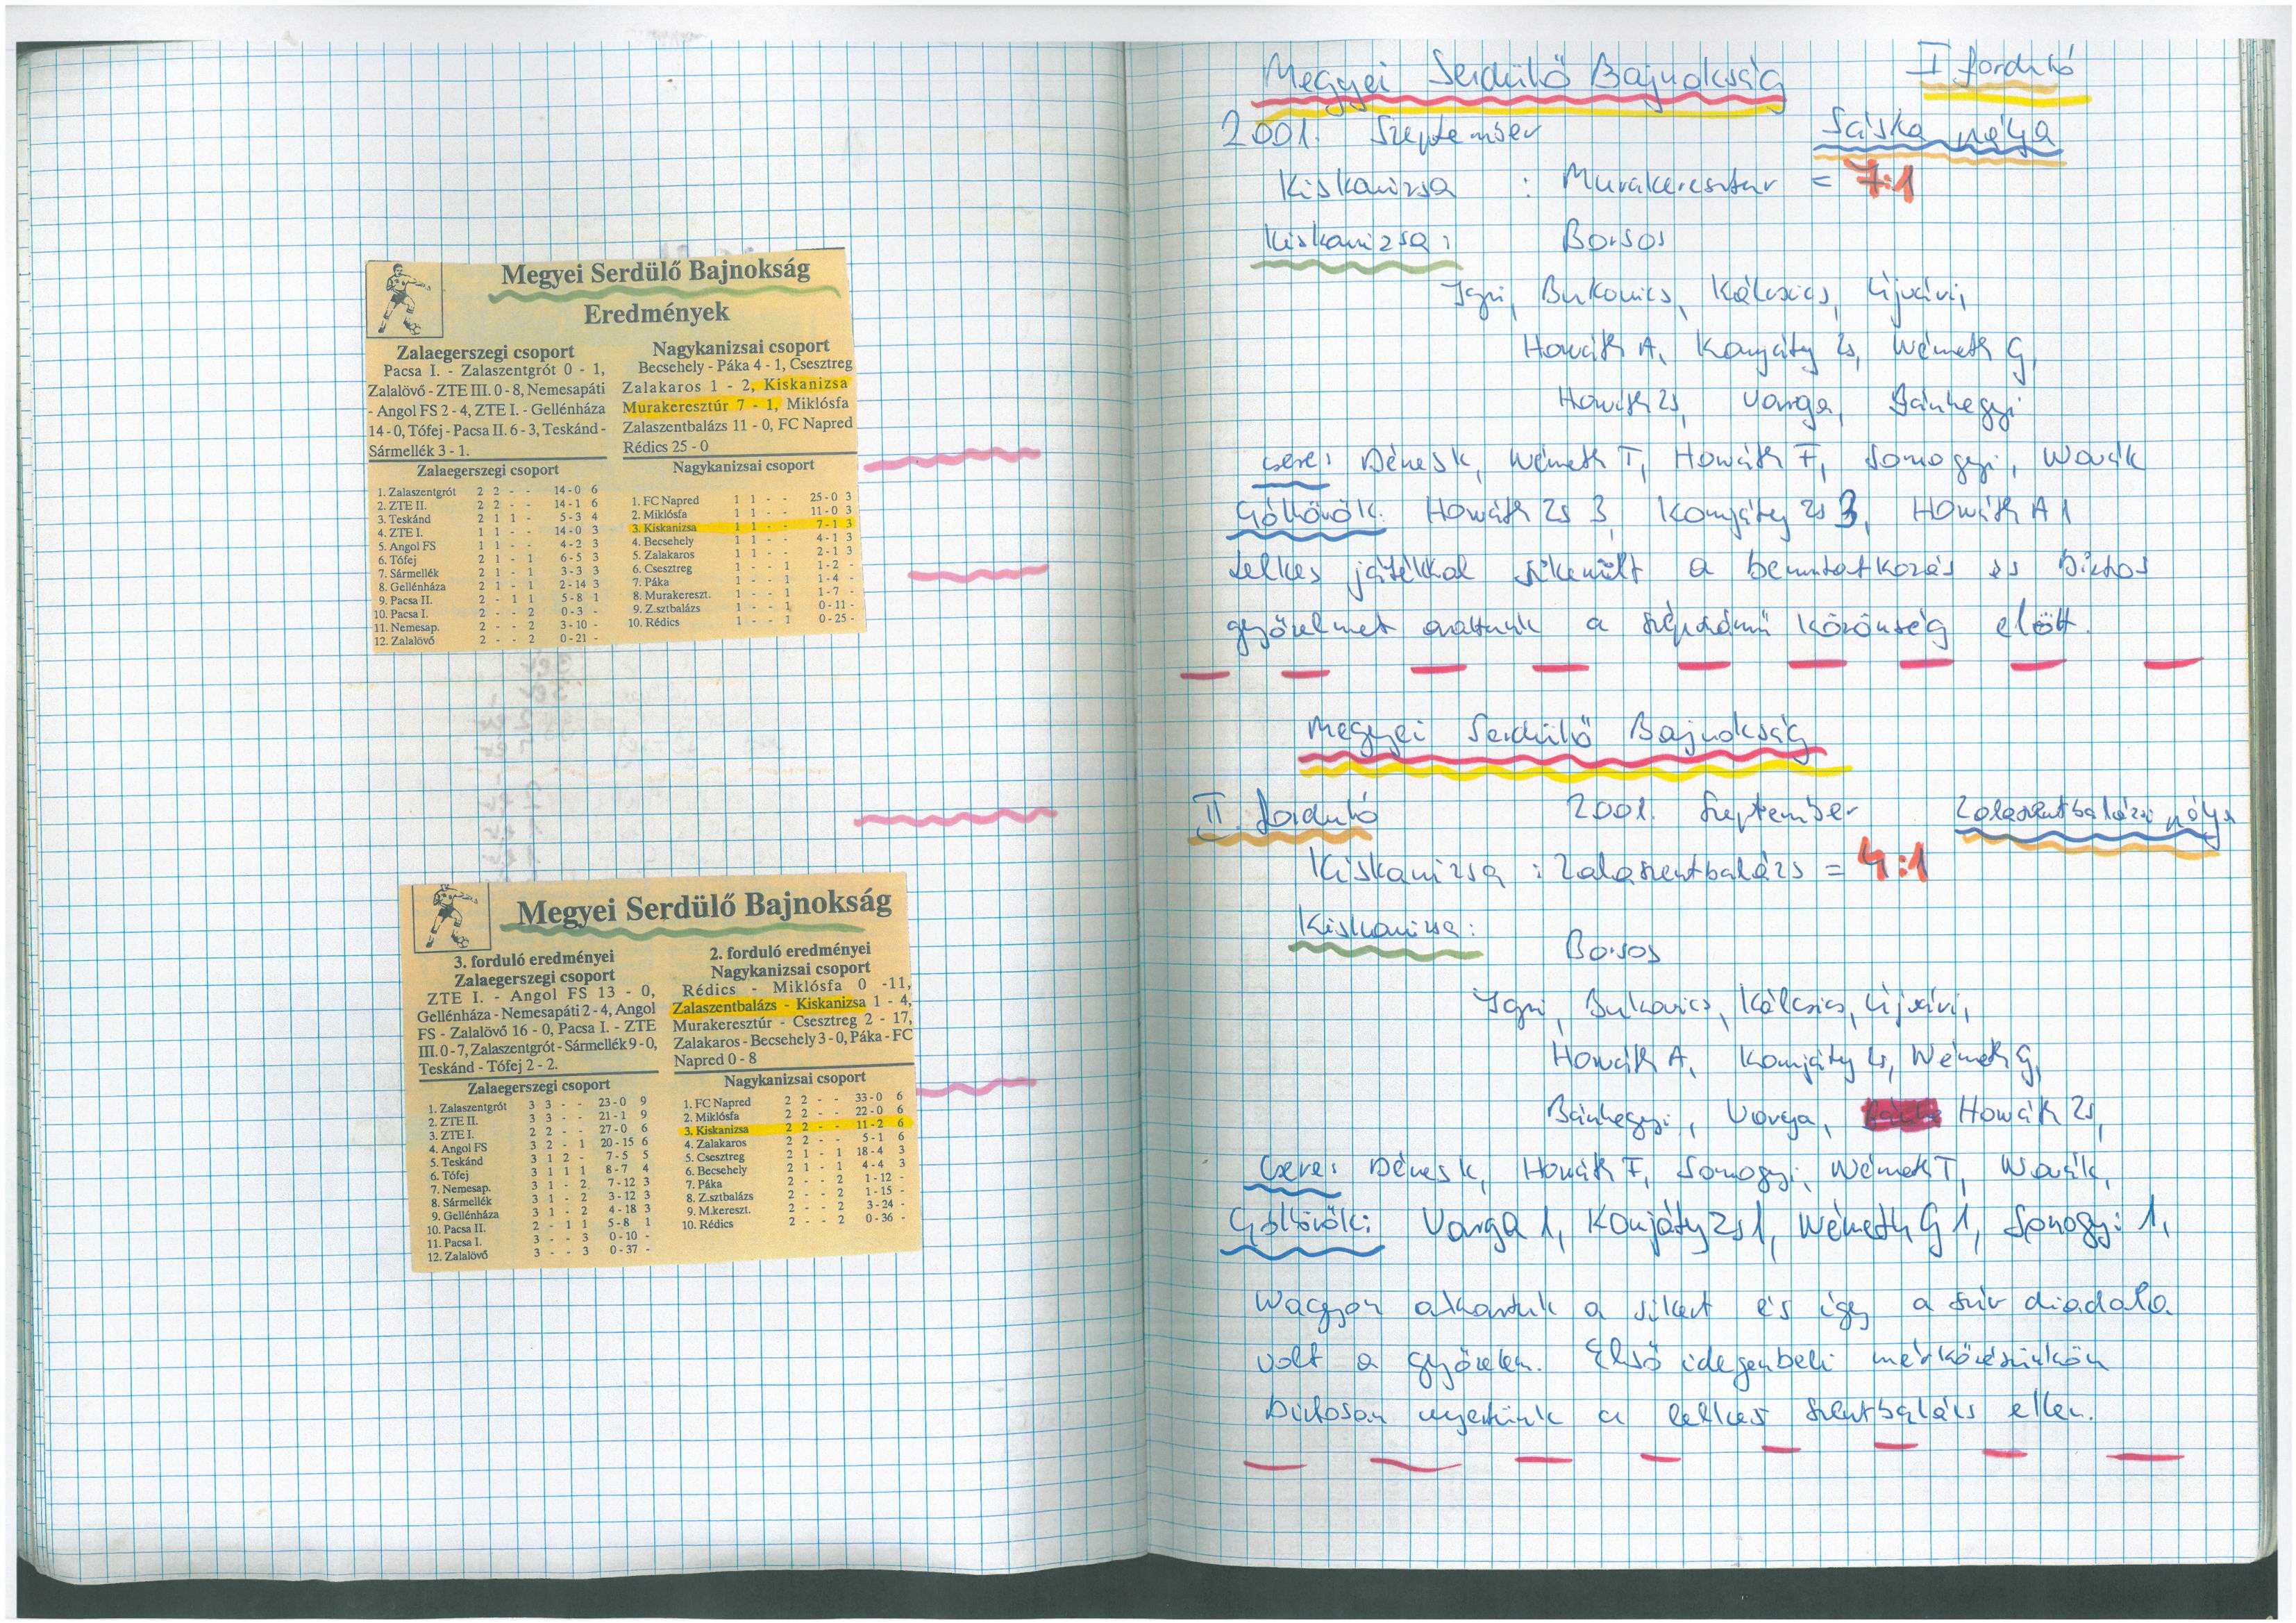 Megyei Serdülő Bajnokság
Eredmények
Zalaegerszegi csoport
Pacsa I. - Zalaszentgrót 0 - 1,
Zalalövő - ZTE III. 0 - 8, Nemesapáti
- Angol FS 2 - 4, ZTE I. - Gellénháza
14 - 0, Tófej - Pacsa II. 6 - 3, Teskánd -
Sármellék 3 - 1.
Zalaegerszegi csoport
1. Zalaszentgrót 2 2 - - 14-0 6
2. ZTE II. 2 2 - - 14-1 6
3. Teskánd 2 1 1 - 5-3 4
4. ZTE I. 1 1 - - 14-0 3
5. Angol FS 1 1 - - 4-2 3
6. Tófej 2 1 - 1 6-5 3
7. Sármellék 2 1 - 1 3-3 3
8. Gellénháza 2 1 - 1 2-14 3
9. Pacsa II. 2 - 1 1 5-8 1
10. Pacsa I. 2 - - 2 0-3 -
11. Nemesap. 2 - - 2 3-10 -
12. Zalalövő 2 - - 2 0-21 -
Nagykanizsai csoport
Becsehely - Páka 4 - 1, Csesztreg
Zalakaros 1 - 2, Kiskanizsa
Murakeresztúr 7 - 1, Miklósfa
Zalaszentbalázs 11 - 0, FC Napred
Rédics 25 - 0
Nagykanizsai csoport
1. FC Napred 1 1 - - 25-0 3
2. Miklósfa 1 1 - - 11-0 3
3. Kiskanizsa 1 1 - - 7-1 3
4. Becsehely 1 1 - - 4-1 3
5. Zalakaros 1 1 - - 2-1 3
6. Csesztreg 1 - - 1 1-2 -
7. Páka 1 - - 1 1-4 -
8. Murakereszt. 1 - - 1 1-7 -
9. Z.sztbalázs 1 - - 1 0-11 -
10. Rédics 1 - - 1 0-25 -
Megyei Serdülő Bajnokság
3. forduló eredményei
Zalaegerszegi csoport
ZTE I. - Angol FS 13 - 0,
Gellénháza - Nemesapáti 2 - 4, Angol
FS - Zalalövő 16 - 0, Pacsa I. - ZTE
III. 0 - 7, Zalaszentgrót - Sármellék 9 - 0,
Teskánd - Tófej 2 - 2.
Zalaegerszegi csoport
1. Zalaszentgrót 3 3 - - 23-0 9
2. ZTE II. 3 3 - - 21-1 9
3. ZTE I. 2 2 - - 27-0 6
4. Angol FS 3 2 - 1 20-15 6
5. Teskánd 3 1 2 - 7-5 5
6. Tófej 3 1 1 1 8-7 4
7. Nemesap. 3 1 - 2 7-12 3
8. Sármellék 3 1 - 2 3-12 3
9. Gellénháza 3 1 - 2 4-18 3
10. Pacsa II. 2 - 1 1 5-8 1
11. Pacsa I. 3 - - 3 0-10 -
12. Zalalövő 3 - - 3 0-37 -
2. forduló eredményei
Nagykanizsai csoport
Rédics - Miklósfa 0 -11,
Zalaszentbalázs - Kiskanizsa 1 - 4,
Murakeresztúr - Csesztreg 2 - 17,
Zalakaros - Becsehely 3 - 0, Páka - FC
Napred 0 - 8
Nagykanizsai csoport
1. FC Napred 2 2 - - 33-0 6
2. Miklósfa 2 2 - - 22-0 6
3. Kiskanizsa 2 2 - - 11-2 6
4. Zalakaros 2 2 - - 5-1 6
5. Csesztreg 2 1 - 1 18-4 3
6. Becsehely 2 1 - 1 4-4 3
7. Páka 2 - - 2 1-12 -
8. Z.sztbalázs 2 - - 2 1-15 -
9. M.kereszt. 2 - - 2 3-24 -
10. Rédics 2 - - 2 0-36 -
Megyei Serdülő Bajnokság I forduló
2001. Szeptember Sáska pálya
Kiskanizsa : Murakeresztur = 7:1
Kiskanizsa: Borsos
Igri, Bukovics, Kálcsics, Újvári,
Horváth A, Komjáty Zs, Németh G,
Horváth Zs, Varga, Bánhegyi
Csere: Dénes K, Németh T, Horváth F, Somogyi, Novák
Góllövők: Horváth Zs 3, Komjáty Zs 3, Horváth A 1
Lelkes játékkal sikerült a bemutatkozás és biztos
győzelmet arattunk a szépszámú közönség előtt.
Megyei Serdülő Bajnokság
II. forduló 2001. Szeptember Zalaszentbalázsi pálya
Kiskanizsa : Zalaszentbalázs = 4:1
Kiskanizsa:
Borsos
Igri, Bukovics, Kálcsics, Újvári,
Horváth A, Komjáty Zs, Németh G,
Bánhegyi, Varga, Horváth Zs,
Csere: Dénes K, Horváth F, Somogyi, Németh T, Novák,
Góllövők: Varga 1, Komjáty Zs 1, Németh G 1, Somogyi 1,
Nagyon akartuk a sikert és így a szív diadala
volt a győzelem. Első idegenbeli mérkőzésünkön
biztosan nyertünk a lelkes Szentbalázs ellen.